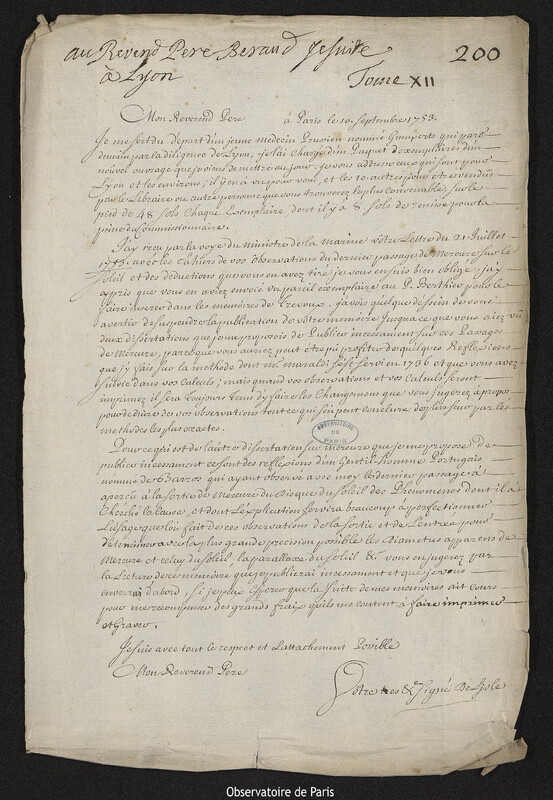 au Reverend Pere Beraud Jesuite
à Lyon
200
Tome XII
Mon Reverend Pere à Paris le 10. Septembre 1753.
Je me sert du départ d'un jeune medecin Prussien nommé Gumperts qui part
demain par la diligence de Lyon, je l'ai chargé d'un Paquet d'exemplaires d'un
nouvel ouvrage que je viens de mettre au jour. je vous addresse ceux qui sont pour
Lyon et les environs; il y en a un pour vous, et les 10. autres pour etre vendus
par le Libraire ou autre personne que vous trouverez le plus convenable, sur le
pied de 48 sols chaque Exemplaire dont il y à 8 sols de remise pour la
peine du Commissionnaire.
J'ay reçu par la voye du Ministre de la Marine vôtre Lettre du 21 Juillet
1753. avec les cahiers de vos observations du dernier passage de Mercure sur le
Soleil et des déductions que vous en avez tiré, je vous en suis bien obligé; j'ay
appris que vous en aviez envoié un pareil exemplaire au P. Berthier pour le
faire inserer dans les memoires de Trevoux. j'avois quelque dessein de vous
avertir de suspendre la publication de vôtre memoire jusqu'à ce que vous aiez vû
deux dissertations que je me propose de Publier incessament sur ces Passages
de Mercure, parce que vous auriez peut être pû profiter de quelques Reflexions
que j'y fais sur la methode dont mr. Maraldi s'est servi en 1736 et que vous avez
suivie dans vos calculs; mais quand vos observations et vos calculs seront
imprimez il sera toujours tems d'y faire les Changemens que vous jugerez à propos
pour deduire de vos observations tout ce qui s'en peut conclure de plus sur par les
methodes les plus exactes.
OBSERVATOIRE
DE
PARIS
Pour ce qui est de l'autre dissertation sur mercure que je me propose de
publier incessament ce sont des reflexions d'un Gentil-homme Portugais
nommé de Barros qui ayant observé avec moy le dernier passage à
aperçu à la sortie de Mercure du Disque du Soleil des Phenomenes dont il à
cherché la cause, et dont l'explication servira beaucoup à perfectionner
l'usage que l'on fait de ces observations de la sortie et de l'entrée pour
determiner avec la plus grande precision possible les Diametres apparens de
Mercure et celuy du Soleil, la parallaxe du Soleil &c vous en jugerez par
la Lecture de ces memoires que je publierai incessament et que je vous
enverrai d'abord, si je peux. j'espere que la suite de mes memoires ait cours
pour me recompenser des grands fraix qu'ils me coutent à faire imprimer
et Graver.
Je suis avec tout le respect et l'attachement Possible
Mon Reverend Pere
Votre tres &c Signé De Lisle
Observatoire de Paris